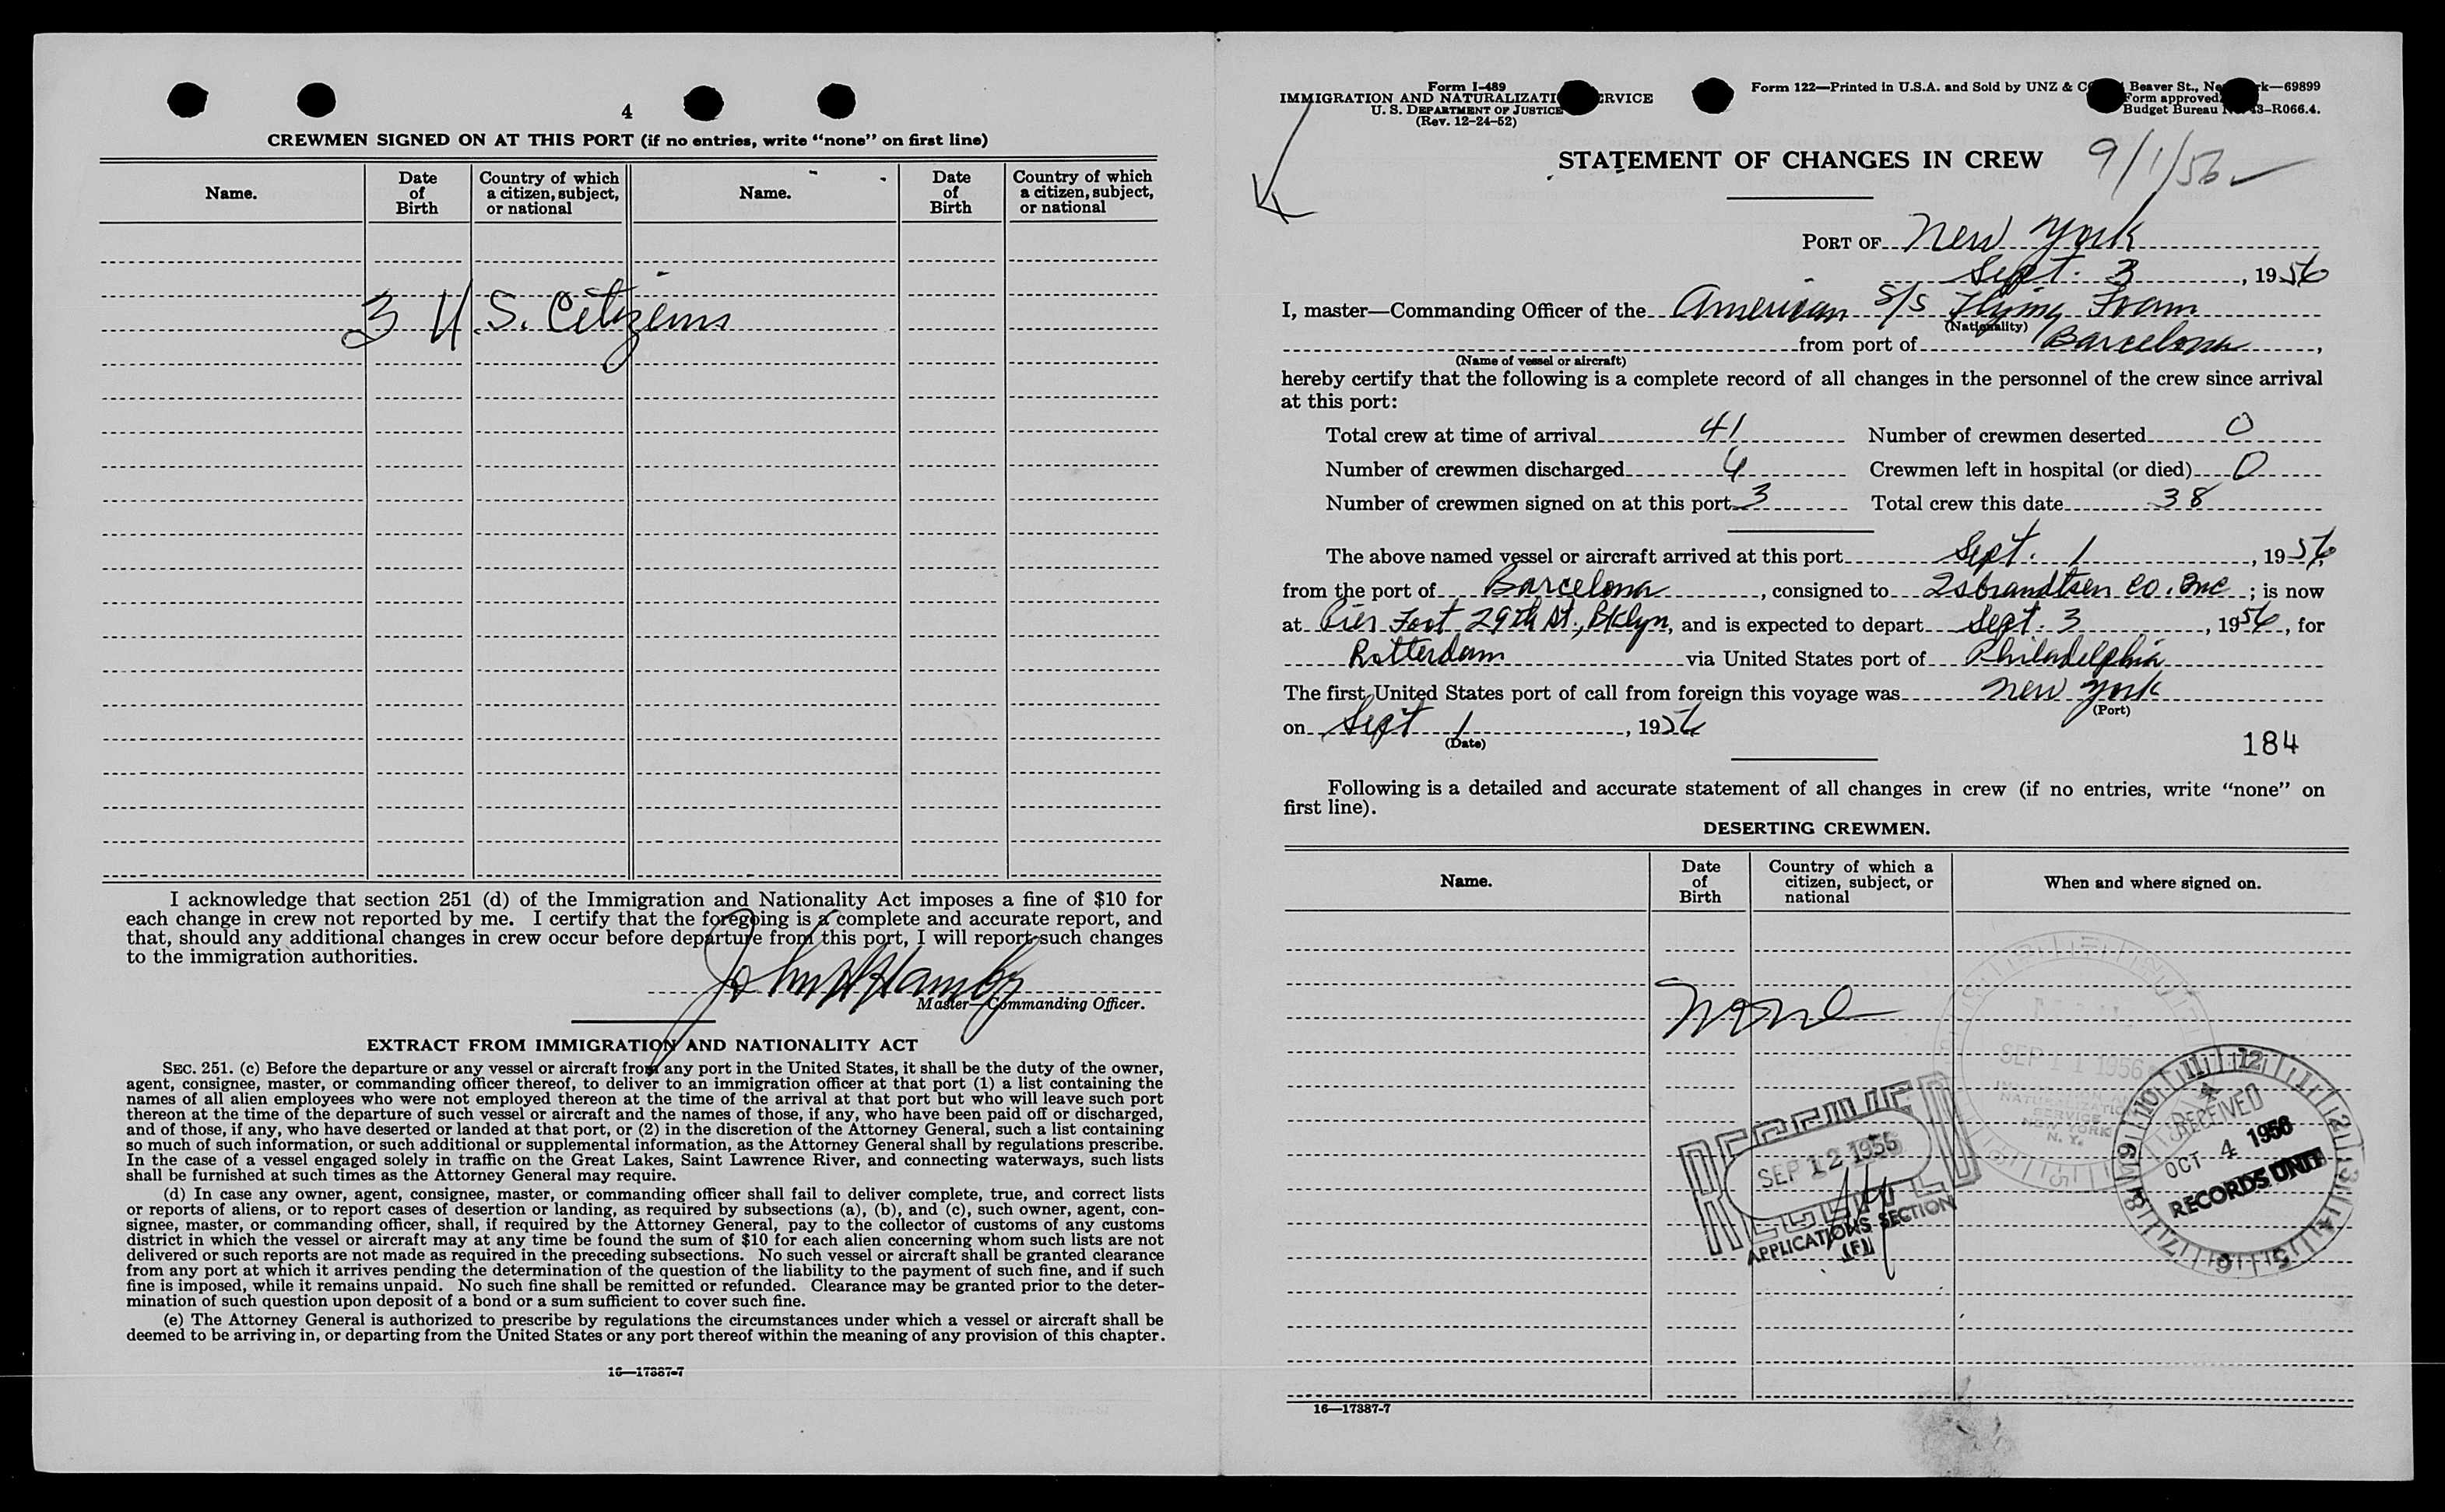 4
CREWMEN SIGNED ON AT THIS PORT (if no entries, write “none” on first line)
Name.
Date of Birth
Country of which a citizen, subject, or national
Name.
Date of Birth
Country of which a citizen, subject, or national
3 U.S. Citizens
I acknowledge that section 251 (d) of the Immigration and Nationality Act imposes a fine of $10 for
each change in crew not reported by me. I certify that the foregoing is a complete and accurate report, and
that, should any additional changes in crew occur before departure from this port, I will report such changes
to the immigration authorities.
Master—Commanding Officer.
EXTRACT FROM IMMIGRATION AND NATIONALITY ACT
SEC. 251. (c) Before the departure or any vessel or aircraft from any port in the United States, it shall be the duty of the owner,
agent, consignee, master, or commanding officer thereof, to deliver to an immigration officer at that port (1) a list containing the
names of all alien employees who were not employed thereon at the time of the arrival at that port but who will leave such port
thereon at the time of the departure of such vessel or aircraft and the names of those, if any, who have been paid off or discharged,
and of those, if any, who have deserted or landed at that port, or (2) in the discretion of the Attorney General, such a list containing
so much of such information, or such additional or supplemental information, as the Attorney General shall by regulations prescribe.
In the case of a vessel engaged solely in traffic on the Great Lakes, Saint Lawrence River, and connecting waterways, such lists
shall be furnished at such times as the Attorney General may require.
(d) In case any owner, agent, consignee, master, or commanding officer shall fail to deliver complete, true, and correct lists
or reports of aliens, or to report cases of desertion or landing, as required by subsections (a), (b), and (c), such owner, agent, con-
signee, master, or commanding officer, shall, if required by the Attorney General, pay to the collector of customs of any customs
district in which the vessel or aircraft may at any time be found the sum of $10 for each alien concerning whom such lists are not
delivered or such reports are not made as required in the preceding subsections. No such vessel or aircraft shall be granted clearance
from any port at which it arrives pending the determination of the question of the liability to the payment of such fine, and if such
fine is imposed, while it remains unpaid. No such fine shall be remitted or refunded. Clearance may be granted prior to the deter-
mination of such question upon deposit of a bond or a sum sufficient to cover such fine.
(e) The Attorney General is authorized to prescribe by regulations the circumstances under which a vessel or aircraft shall be
deemed to be arriving in, or departing from the United States or any port thereof within the meaning of any provision of this chapter.
16—17387-7
Form I-489
IMMIGRATION AND NATURALIZATI RVICE
U. S. DEPARTMENT OF JUSTICE
(Rev. 12-24-52)
Form 122—Printed in U.S.A. and Sold by UNZ & C Beaver St., Ne k—69899
Form approved
Budget Bureau N 43-R066.4.
STATEMENT OF CHANGES IN CREW
9/1/56
PORT OF New York
Sept. 3, 1956
I, master—Commanding Officer of the American S/S Flying Foam
(Nationality)
from port of Barcelona,
(Name of vessel or aircraft)
hereby certify that the following is a complete record of all changes in the personnel of the crew since arrival
at this port:
Total crew at time of arrival 41 Number of crewmen deserted 0
Number of crewmen discharged Crewmen left in hospital (or died) 0
Number of crewmen signed on at this port 3 Total crew this date 38
The above named vessel or aircraft arrived at this port Sept. 1, 1956,
from the port of Barcelona, consigned to Isbrandtsen Co. Inc; is now
at Pier Foot 29th St., Bklyn, and is expected to depart Sept. 3, 1956, for
Rotterdam via United States port of Philadelphia
The first United States port of call from foreign this voyage was New York
(Port)
on Sept 1, 1956
(Date)
184
Following is a detailed and accurate statement of all changes in crew (if no entries, write “none” on
first line).
DESERTING CREWMEN.
Name.
Date of Birth
Country of which a citizen, subject, or national
When and where signed on.
None
SEP 11 1956
NEW YORK
N. Y.
SEP 12 1956
APPLICATIONS SECTION
(F)
RECEIVED
OCT 4 1956
RECORDS UNIT
16—17387-7